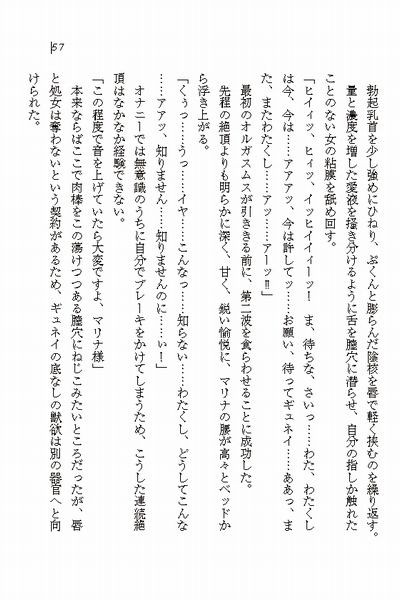 57
勃起乳首を少し強めにひねり、ぷくんと膨らんだ陰核を唇で軽く挟むのを繰り返す。
量と濃度を増した愛液を掻き分けるように舌を膣穴に潜らせ、自分の指しか触れた
ことのない女の粘膜を舐め回す。
「ヒイィッ、ヒィッ、イッヒイイィーッ！　ま、待ちな、さいっ……わた、わたくし
は今、今は……アアアッ、今は許してッ……お願い、待ってギュネイ……ああっ、ま
た、またわたくし……アッ……アーッ!!」
最初のオルガスムスが引ききる前に、第二波を食らわせることに成功した。
先程の絶頂よりも明らかに深く、甘く、鋭い愉悦に、マリナの腰が高々とベッドか
ら浮き上がる。
「くぅっ……うっ……イヤ……こんなっ……知らない……わたくし、どうしてこんな
……アアッ、知りません……知りませんのに……ぃ！」
オナニーでは無意識のうちに自分でブレーキをかけてしまうため、こうした連続絶
頂はなかなか経験できない。
「この程度で音を上げていたら大変ですよ、マリナ様」
本来ならばここで肉棒をこの蕩けつつある膣穴にねじこみたいところだったが、唇
と処女は奪わないという契約があるため、ギュネイの底なしの獣欲は別の器官へと向
けられた。